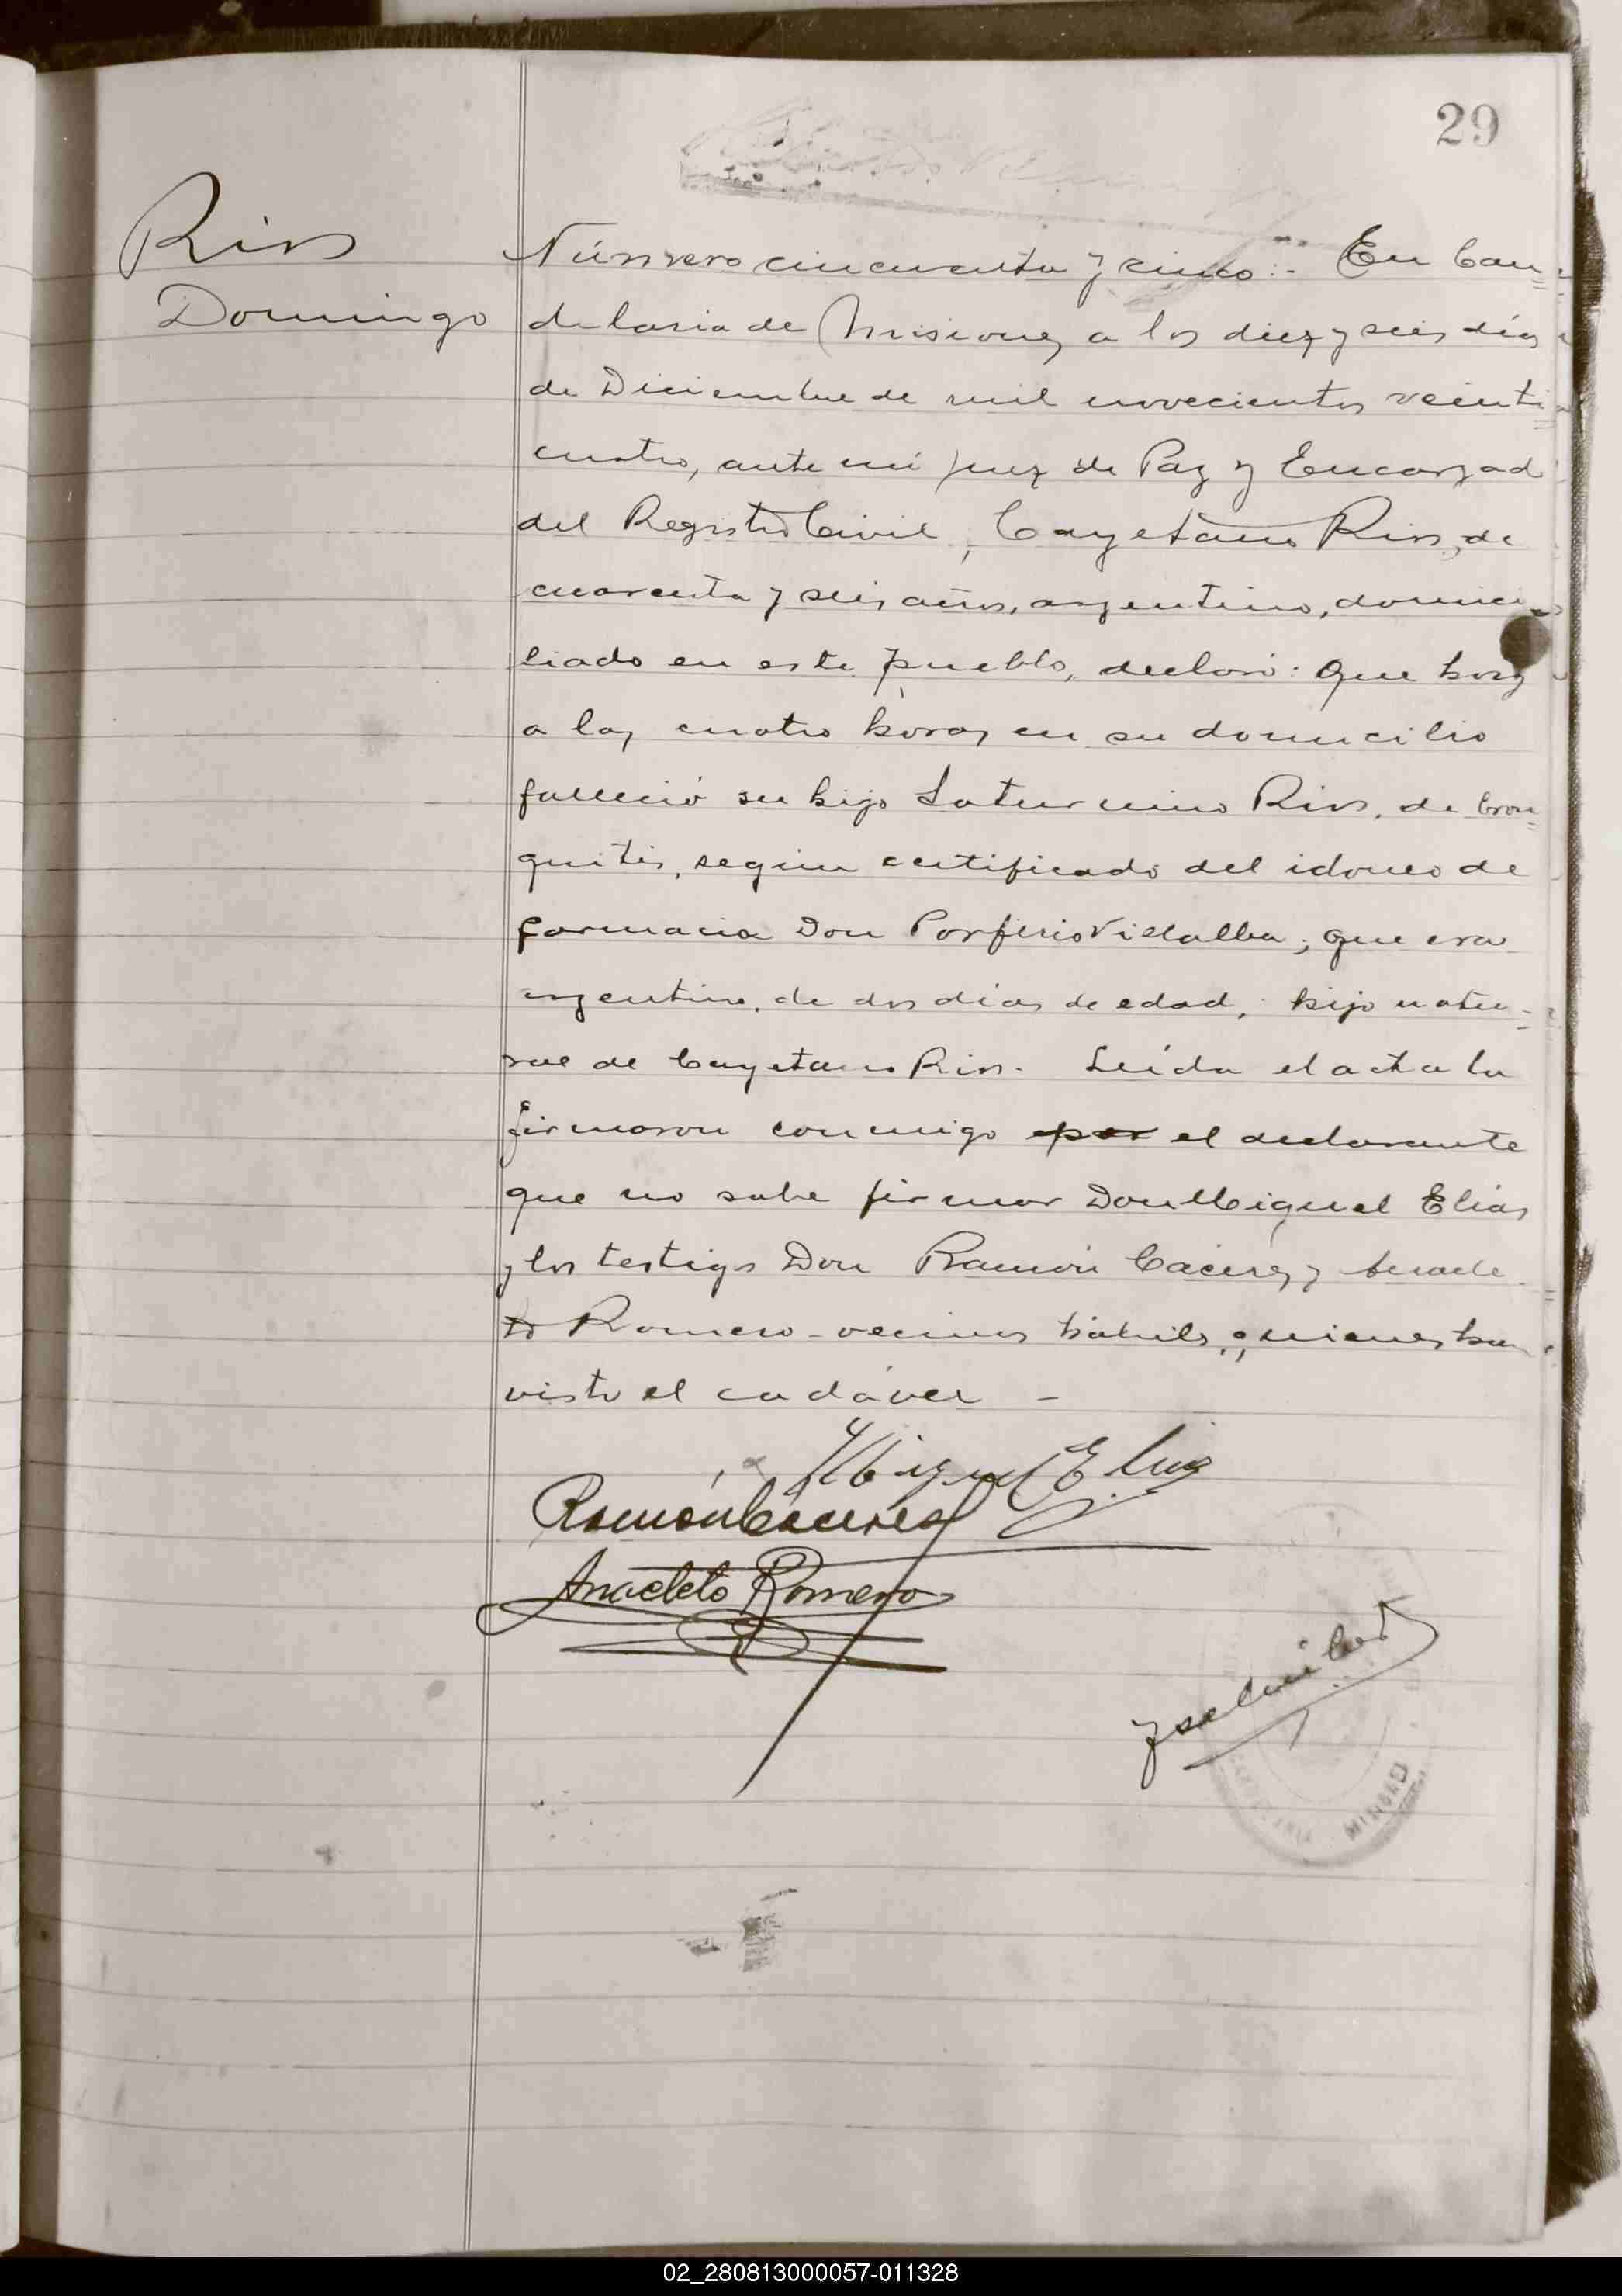 29
Rios
Domingo
Número cincuenta y cinco:- En Can=
delaria de Misiones, a los diez y seis días
de Diciembre de mil novecientos veinti=
cuatro, ante mí Juez de Paz y Encargad
del Registro Civil, Cayetano Rios, de
cuarenta y seis años, argentino, domici=
liado en este pueblo, declaró: Que hoy
a las cuatro horas en su domicilio
falleció su hijo Saturnino Rios, de bron=
quitis, según certificado del idoneo de
farmacia Don Porfirio Villalba; que era
argentino, de dos días de edad, hijo natu=
ral de Cayetano Rios. Leída el acta la
firmaron conmigo por el declarante
que no sabe firmar Don Miguel Elias
y los testigos Don Ramón Cáceres y Anacle=
to Romero - vecinos hábiles, quienes han
visto el cadáver -
Miguel Elias
Ramón Cáceres
Anacleto Romero
CANDELARIA MISIONES
02_280813000057-011328